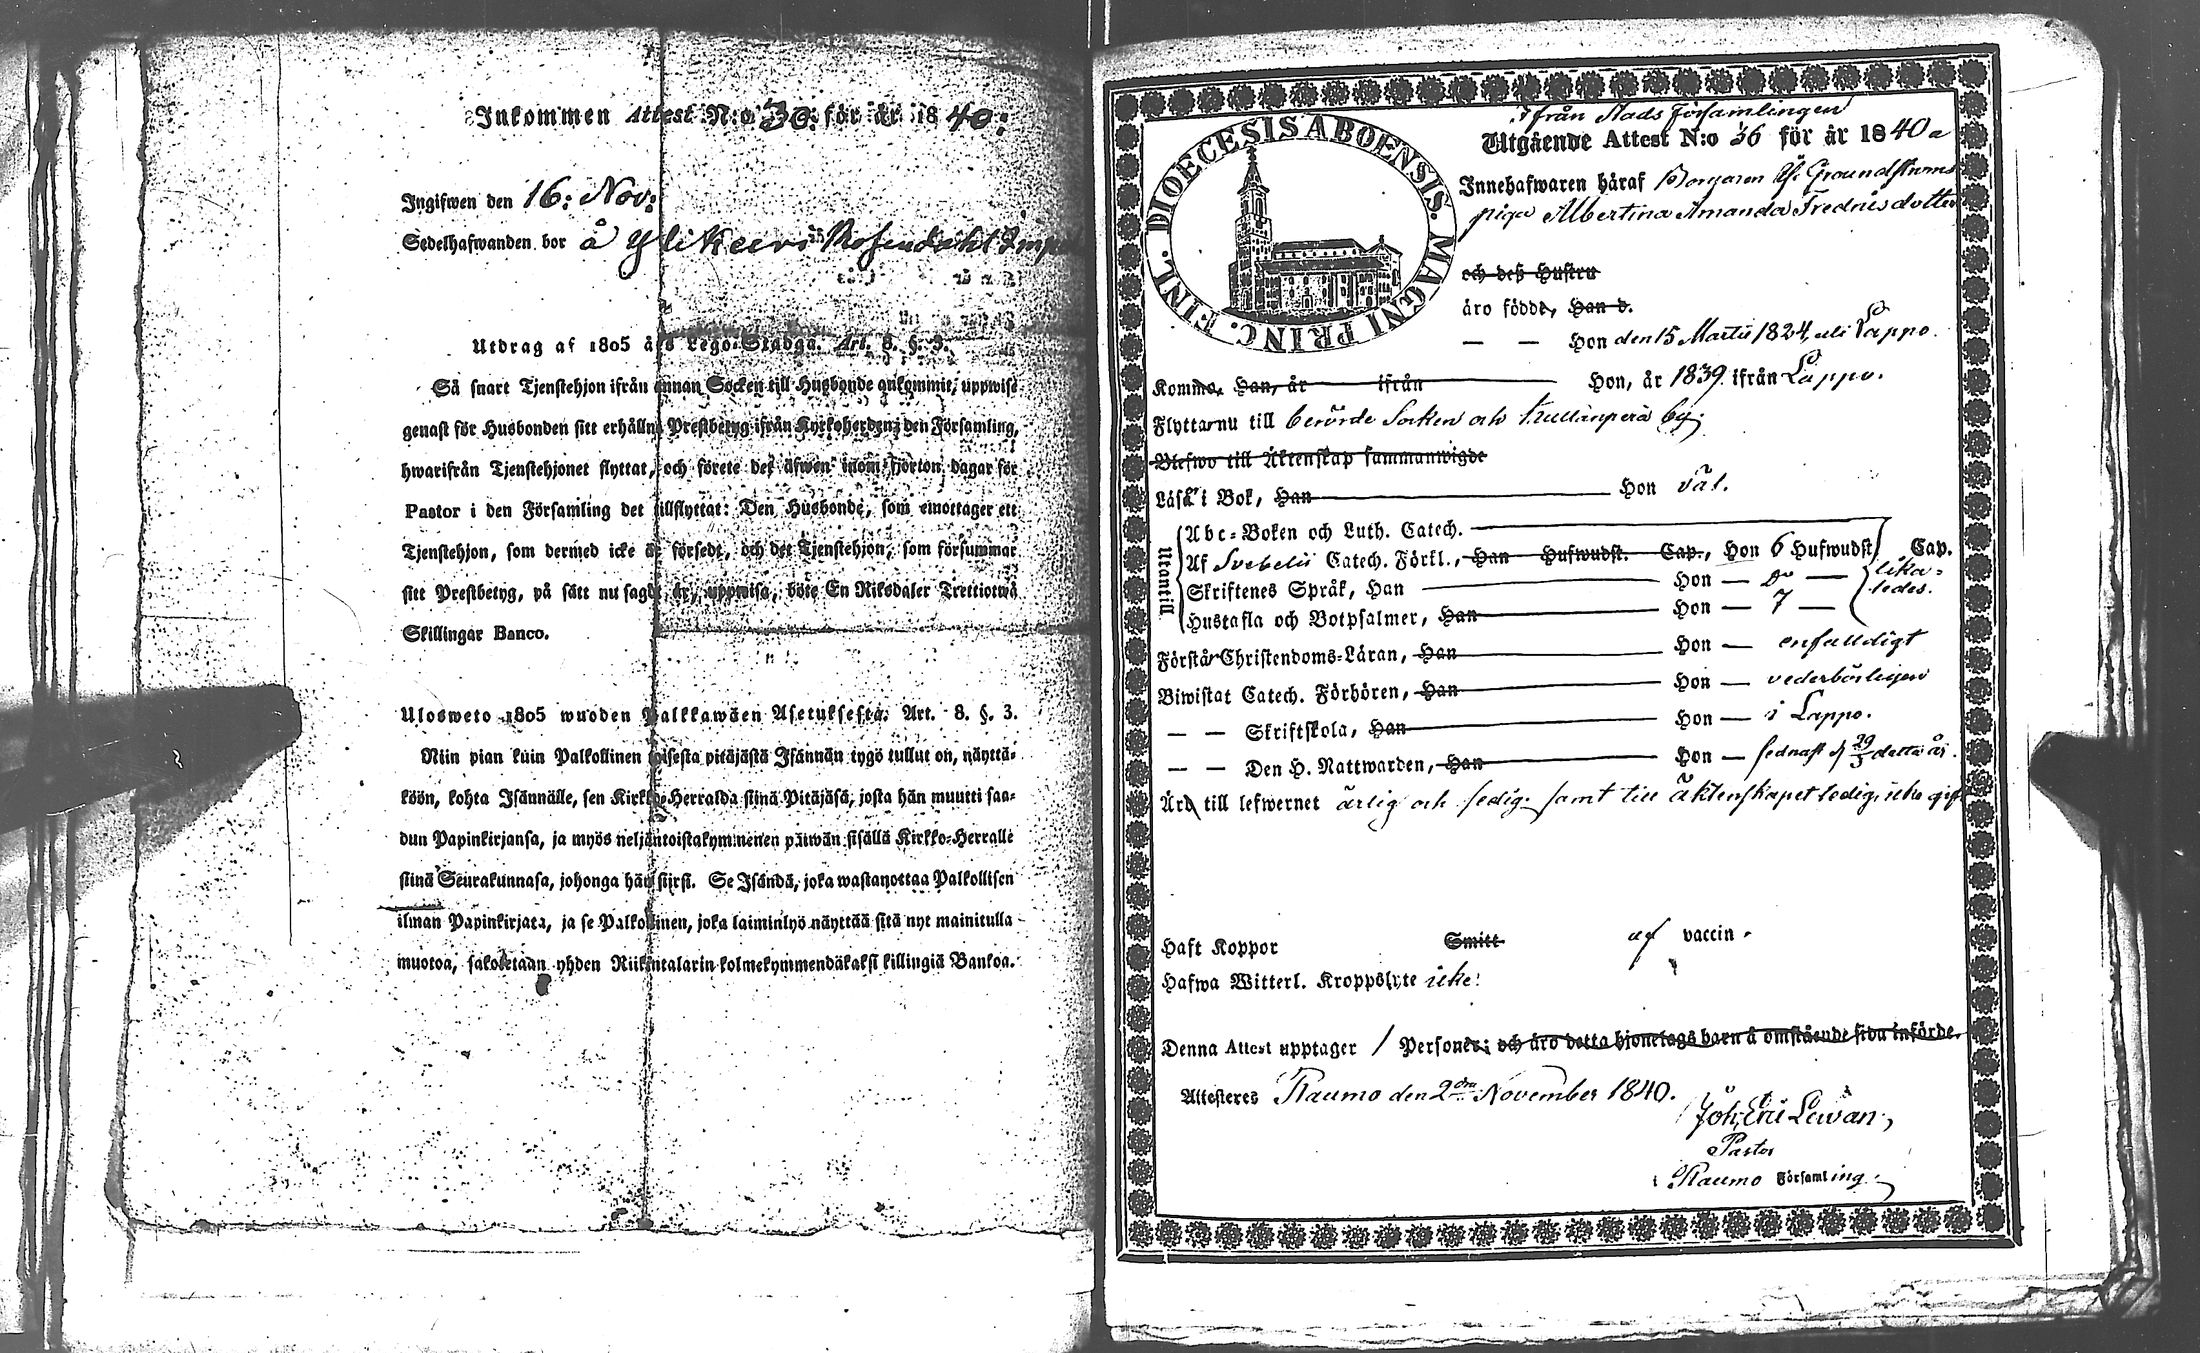 Inkommen Attest N:o 30: för år 1840:
Ingifwen den 16: Nov:
Sedelhafwanden bor å Ylikeeri Rosendahl Imp
Utdrag af 1805 års Lego-Stadga. Art. 8. §. 3.
Så snart Tjenstehjon ifrån annan Socken till Husbonde ankommit, uppwise
genast för Husbonden sitt erhållna Prestbetyg ifrån Kyrkoherden i den Församling,
hwarifrån Tjenstehjonet flyttat, och förete det äfwen inom fjorton dagar för
Pastor i den Församling det tillflyttat: Den Husbonde, som emottager ett
Tjenstehjon, som dermed icke är försedt, och det Tjenstehjon, som försummar
sitt Prestbetyg, på sätt nu sagdt är, uppwisa, böte En Riksdaler Trettiotwå
Skillingar Banco.
Ulosweto 1805 wuoden Palkkawäen Asetuksesta. Art. 8. §. 3.
Niin pian kuin Palkollinen toisesta pitäjästä Isännän tygö tullut on, näyttä-
köön, kohta Isännälle, sen Kirkko-Herralda siinä Pitäjäsä, josta hän muutti saa-
dun Papinkirjansa, ja myös neljäntoistakymmenen päiwän sisällä Kirkko-Herralle
siinä Seurakunnasa, johonga hän siirsi. Se Isändä, joka wastanottaa Palkollisen
ilman Papinkirjata, ja se Palkollinen, joka laiminlyö näyttää sitä nyt mainitulla
muotoa, sakotetaan yhden Riikintalarin kolmekymmendäkaksi killingiä Bankoa.
DIOECESIS ABOENSIS. MAGNI PRINC. FINL.
Ifrån Stads Församlingen
Utgående Attest N:o 36 för år 1840
Innehafwaren häraf Borgaren Groundstroms
pigo Albertina Amanda Fredriksdotter
och deß Hustru
äro födde, Han d.
— — Hon den 15 Martii 1824, uti Lappo.
Komma, Han, år ifrån Hon, år 1839. ifrån Lappo.
Flytta nu till berörde Socken och Kullanperä by.
Blefwo till Äktenskap sammanwigde
Läsa i Bok, Han Hon väl.
Utantill
Abc-Boken och Luth. Catech.
Af Svebelii Catech. Förkl., Han Hufwudst. Cap., Hon 6 Hufwudst. Cap.
Skriftenes Språk, Han Hon — Do — lika-
Hustafla och Botpsalmer, Han Hon — 7 — ledes.
Förstår Christendoms-Läran, Han Hon — enfalldigt
Biwistat Catech. Förhören, Han Hon — vederbörligen
— — Skriftskola, Han Hon — i Lappo.
— — Den H. Nattwarden, Han Hon — sednast d 29/3 detta år.
Äro till lefwernet ärlig och sedig samt till äktenskapet ledig, icke gift
Haft Koppor Smitt af vaccin.
Hafwa Witterl. Kroppslyte icke:
Denna Attest upptager 1 Personer; och äro detta hionelags barn å omstående sida införde.
Attesteres Raumo den 2dra November 1840.
Joh. Eric Lewan,
Pastor
i Raumo Församling.